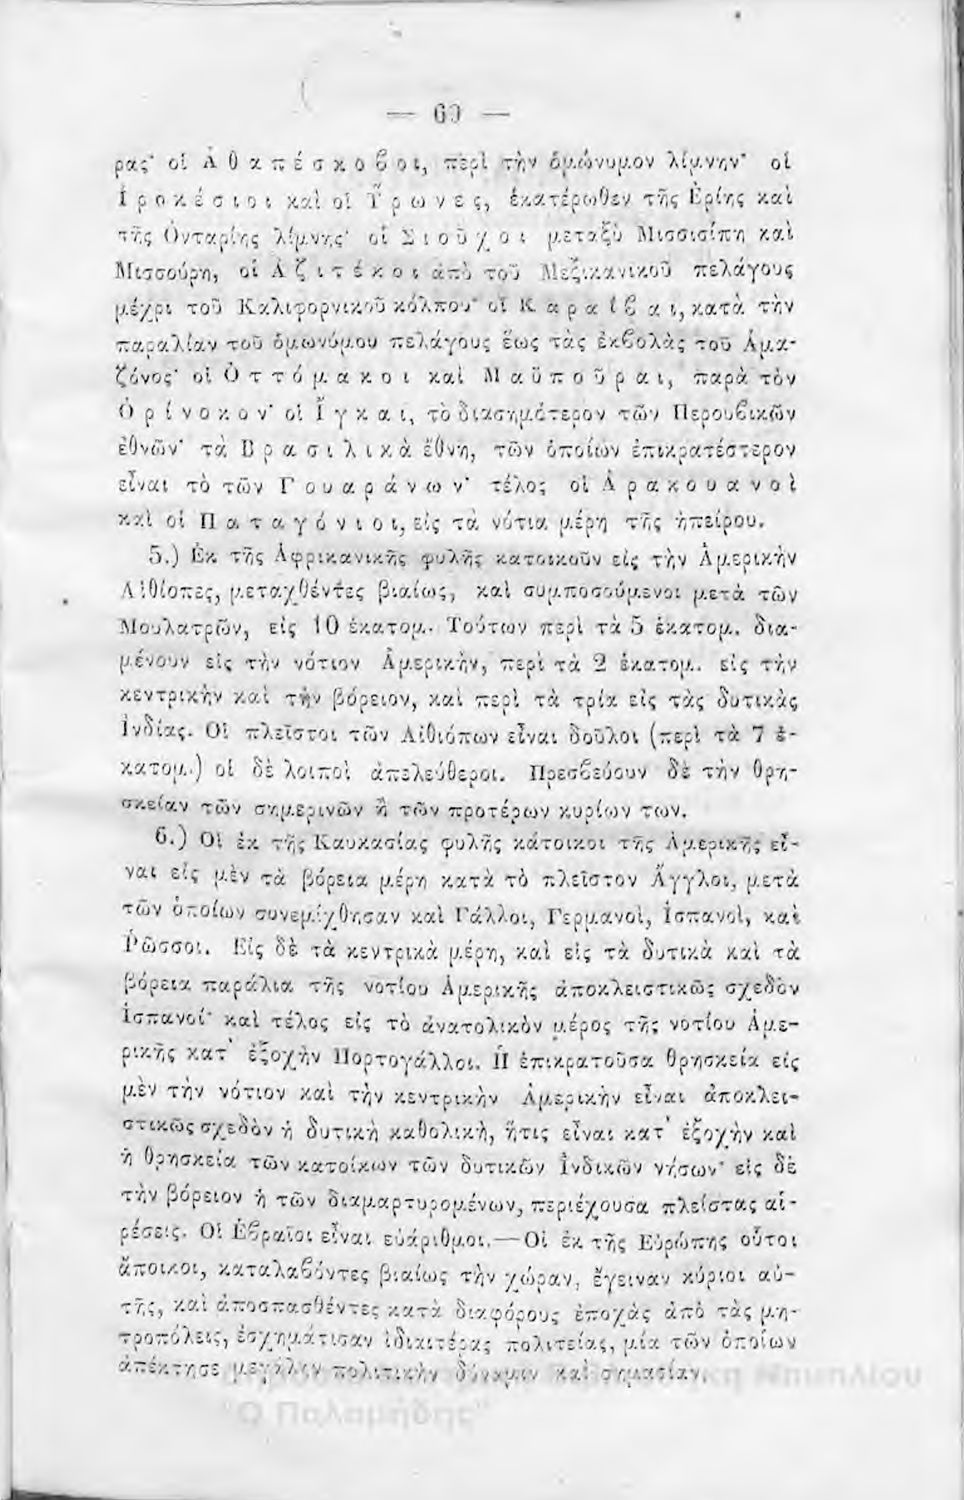 — 60 —
ρας· οἱ Ἀθαπέσκοβοι, περὶ τὴν ὁμώνυμον λίμνην· οἱ
Ἰροκέσιοι καὶ οἱ Ὕρωνες, ἑκατέρωθεν τῆς Ἐρίης καὶ
τῆς Ὀνταρίης λίμνης· οἱ Σιοῦχοι μεταξὺ Μισσισίπη καὶ
Μισσούρη, οἱ Ἀζιτέκοι ἀπὸ τοῦ Μεξικανικοῦ πελάγους
μέχρι τοῦ Καλιφορνικοῦ κόλπου· οἱ Καραίβαι, κατὰ τὴν
παραλίαν τοῦ ὁμωνύμου πελάγους ἕως τὰς ἐκβολὰς τοῦ Ἀμα-
ζόνος· οἱ Ὀττόμακοι καὶ Μαϋποῦραι, παρὰ τὸν
Ὀρίνοκον· οἱ Ἴγκαι, τὸ διασημότερον τῶν Περουβικῶν
ἐθνῶν· τὰ Βρασιλικὰ ἔθνη, τῶν ὁποίων ἐπικρατέστερον
εἶναι τὸ τῶν Γουαράνων· τέλος οἱ Ἀρακουανοὶ
καὶ οἱ Παταγόνιοι, εἰς τὰ νότια μέρη τῆς ἠπείρου.
5.) Ἐκ τῆς Ἀφρικανικῆς φυλῆς κατοικοῦν εἰς τὴν Ἀμερικὴν
Αἰθίοπες, μεταχθέντες βιαίως, καὶ συμποσούμενοι μετὰ τῶν
Μουλατρῶν, εἰς 10 ἑκατομ. Τούτων περὶ τὰ 5 ἑκατομ. δια-
μένουν εἰς τὴν νότιον Ἀμερικὴν, περὶ τὰ 2 ἑκατομ. εἰς τὴν
κεντρικὴν καὶ τὴν βόρειον, καὶ περὶ τὰ τρία εἰς τὰς δυτικὰς
Ἰνδίας. Οἱ πλεῖστοι τῶν Αἰθιόπων εἶναι δοῦλοι (περὶ τὰ 7 ἑ-
κατομ.) οἱ δὲ λοιποὶ ἀπελεύθεροι. Πρεσβεύουν δὲ τὴν θρη-
σκείαν τῶν σημερινῶν ἢ τῶν προτέρων κυρίων των.
6.) Οἱ ἐκ τῆς Καυκασίας φυλῆς κάτοικοι τῆς Ἀμερικῆς εἶ-
ναι εἰς μὲν τὰ βόρεια μέρη κατὰ τὸ πλεῖστον Ἄγγλοι, μετὰ
τῶν ὁποίων συνεμίχθησαν καὶ Γάλλοι, Γερμανοὶ, Ἱσπανοὶ, καὶ
Ῥῶσσοι. Εἰς δὲ τὰ κεντρικὰ μέρη, καὶ εἰς τὰ δυτικὰ καὶ τὰ
βόρεια παράλια τῆς νοτίου Ἀμερικῆς ἀποκλειστικῶς σχεδὸν
Ἱσπανοί· καὶ τέλος εἰς τὸ ἀνατολικὸν μέρος τῆς νοτίου Ἀμε-
ρικῆς κατ' ἐξοχὴν Πορτογάλλοι. Ἡ ἐπικρατοῦσα θρησκεία εἰς
μὲν τὴν νότιον καὶ τὴν κεντρικὴν Ἀμερικὴν εἶναι ἀποκλει-
στικῶς σχεδὸν ἡ δυτικὴ καθολικὴ, ἥτις εἶναι κατ' ἐξοχὴν καὶ
ἡ θρησκεία τῶν κατοίκων τῶν δυτικῶν Ἰνδικῶν νήσων· εἰς δὲ
τὴν βόρειον ἡ τῶν διαμαρτυρομένων, περιέχουσα πλείστας αἱ-
ρέσεις. Οἱ Ἑβραῖοι εἶναι εὐάριθμοι.—Οἱ ἐκ τῆς Εὐρώπης οὗτοι
ἄποικοι, καταλαβόντες βιαίως τὴν χώραν, ἔγειναν κύριοι αὐ-
τῆς, καὶ ἀποσπασθέντες κατὰ διαφόρους ἐποχὰς ἀπὸ τὰς μη-
τροπόλεις, ἐσχημάτισαν ἰδιαιτέρας πολιτείας, μία τῶν ὁποίων
ἀπέκτησε μεγάλην πολιτικὴν δύναμιν καὶ σημασίαν.
Ναυπλίου
"Ο Παλαμήδης"